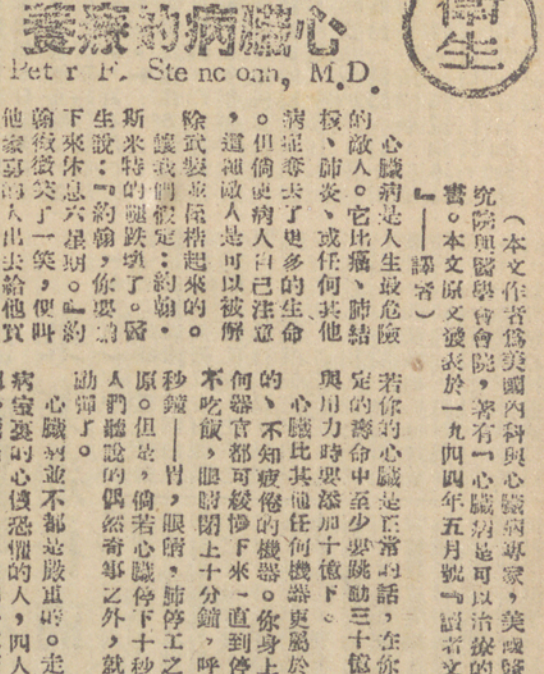 衛生
心臟病的療養
Peter F. Steincrohn, M.D.
（本文作者爲美國內科與心臟病專家，美國醫
究院與醫學會會院，著有「心臟病是可以治療的
書。本文原文發表於一九四四年五月號『讀者文
』——譯者）
心臟病是人生最危險
的敵人。它比癌、肺結
核、肺炎、或任何其他
病症奪去了更多的生命
。但倘使病人自己注意
，這種敵人是可以被解
除武裝並保持起來的。
讓我們假定：約翰·
斯米特的腿跌壞了。醫
生說：『約翰，你要躺
下來休息六星期。』約
翰微微笑了一笑，便叫
他家裏的人出去給他買
若你的心臟是正常的話，在你
定的壽命中至少要跳動三十億
與用力時要添加十億下。
心臟比其他任何機器更屬於
的、不知疲倦的機器。你身上
何器官都可緩慢下來一直到停
不吃飯，眼睛閉上十分鐘，呼
秒鐘——胃，眼睛，肺停工之
原。但是，倘若心臟停下十秒
人們聽說的偶然奇事之外，就
動彈了。
心臟病並不都是嚴重的。走
病室裏的心懷恐懼的人，四人